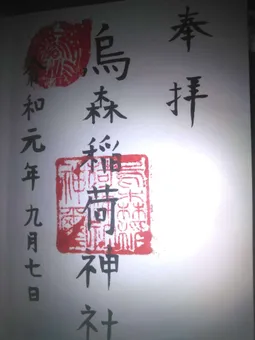 奉拝
烏森稲荷神社
令和元年九月七日